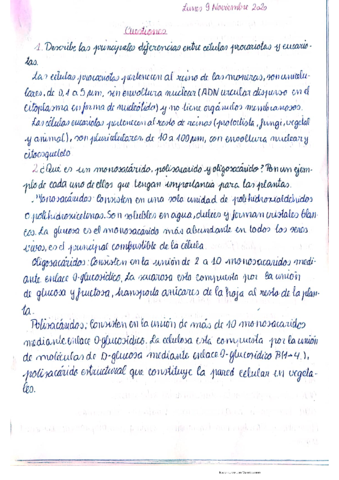 Lunes 9 Noviembre 2020
Cuestiones
1. Describe las principales diferencias entre células procariotas y eucario-
tas.
Las células procariotas pertenecen al reino de las moneras, son unicelu-
leares, de 0,1 a 5 µm, sin envoltura nuclear (ADN circular disperso en el
citoplasma en forma de nucleótido) y no tiene orgánulos membranosos.
Las células eucariotas pertenecen al resto de reinos (protoctista, fungi, vegetal
y animal), son pluricelulares de 10 a 100 µm, con envoltura nuclear y
citoesqueleto
2. ¿Que es un monosacárido, polisacarido y oligosacárido? Pon un ejem-
plo de cada uno de ellos que tengan importancia para las plantas.
-Monosacáridos: Consisten en una sola unidad de polihidroxialdehídos
o polihidroxicetonas. Son solubles en agua, dulces y forman cristales blan-
cos. La glucosa es el monosacárido más abundante en todos los seres
vivos, es el principal combustible de la célula
Oligosacáridos: Consisten en la unión de 2 a 10 monosacaridos medi-
ante enlace O-glucosídico. La sacarosa esta compuesta por la unión
de glucosa y fructosa, transporta azúcares de la hoja al resto de la plan-
ta.
Polisacáridos: Consisten en la unión de más de 10 monosacaridos
mediante enlace O-glucosídico. La celulosa esta compuesta por la unión
de moléculas de D-glucosa mediante enlace O-glucosídico β(1→4),
polisacárido estructural que constituye la pared celular en vegeta-
les.